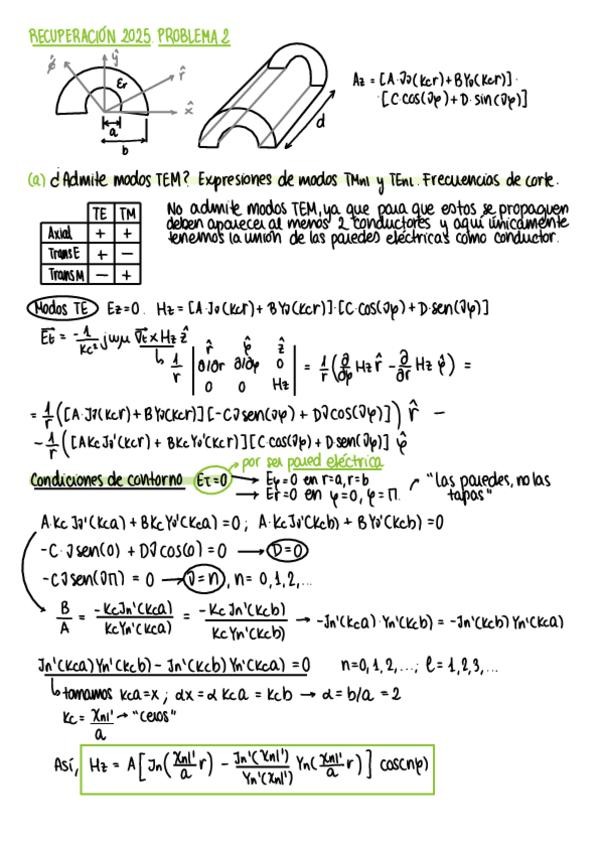 RECUPERACIÓN 2025 PROBLEMA 2
ŷ
φ̂
r̂
x̂
εr
a
b
d
Az = [A·Jν(Kcr) + BYν(Kcr)]·
·[C·cos(νφ) + D·sin(νφ)]
(a) ¿Admite modos TEM? Expresiones de modos TMnl y TEnl. Frecuencias de corte.
TE TM
Axial + +
TransE + −
TransM − +
No admite modos TEM, ya que para que estos se propaguen
deben aparecer al menos 2 conductores y aquí únicamente
tenemos la unión de las paredes eléctricas como conductor.
Modos TE Ez=0. Hz = [A·Jν(Kcr) + BYν(Kcr)]·[C·cos(νφ) + D·sen(νφ)]
Et = -1/Kc² jωμ ∇t × Hz ẑ
1/r | r̂ φ̂ ẑ |
| ∂/∂r ∂/∂φ 0 | = 1/r (∂/∂φ Hz r̂ − ∂/∂r Hz φ̂) =
| 0 0 Hz |
= 1/r ([A·Jν(Kcr) + BYν(Kcr)][-Cνsen(νφ) + Dνcos(νφ)]) r̂ −
− 1/r ([AKcJν'(Kcr) + BKcYν'(Kcr)][C·cos(νφ) + D·sen(νφ)] φ̂
por ser pared eléctrica
Condiciones de contorno Eτ=0 → Eφ=0 en r=a, r=b
→ Er=0 en φ=0, φ=π.
"Las paredes, no las
tapas"
A·Kc Jν'(Kca) + BKcYν'(Kca) = 0; A·KcJν'(Kcb) + BYν'(Kcb) = 0
-C·νsen(0) + Dνcos(0) = 0 → D=0
-Cνsen(νπ) = 0 → ν=n, n= 0,1,2,...
B/A = -KcJn'(Kca)/KcYn'(Kca) = -KcJn'(Kcb)/KcYn'(Kcb) → -Jn'(Kca)·Yn'(Kcb) = -Jn'(Kcb)Yn'(Kca)
Jn'(Kca)Yn'(Kcb) − Jn'(Kcb)Yn'(Kca) = 0 n=0,1,2,...; l=1,2,3,...
tomamos Kca=x; αx = α Kca = Kcb → α = b/a = 2
Kc = χnl'/a → "ceros"
Así, Hz = A[Jn(χnl'/a r) − Jn'(χnl')/Yn'(χnl') Yn(χnl'/a r)] cos(nφ)